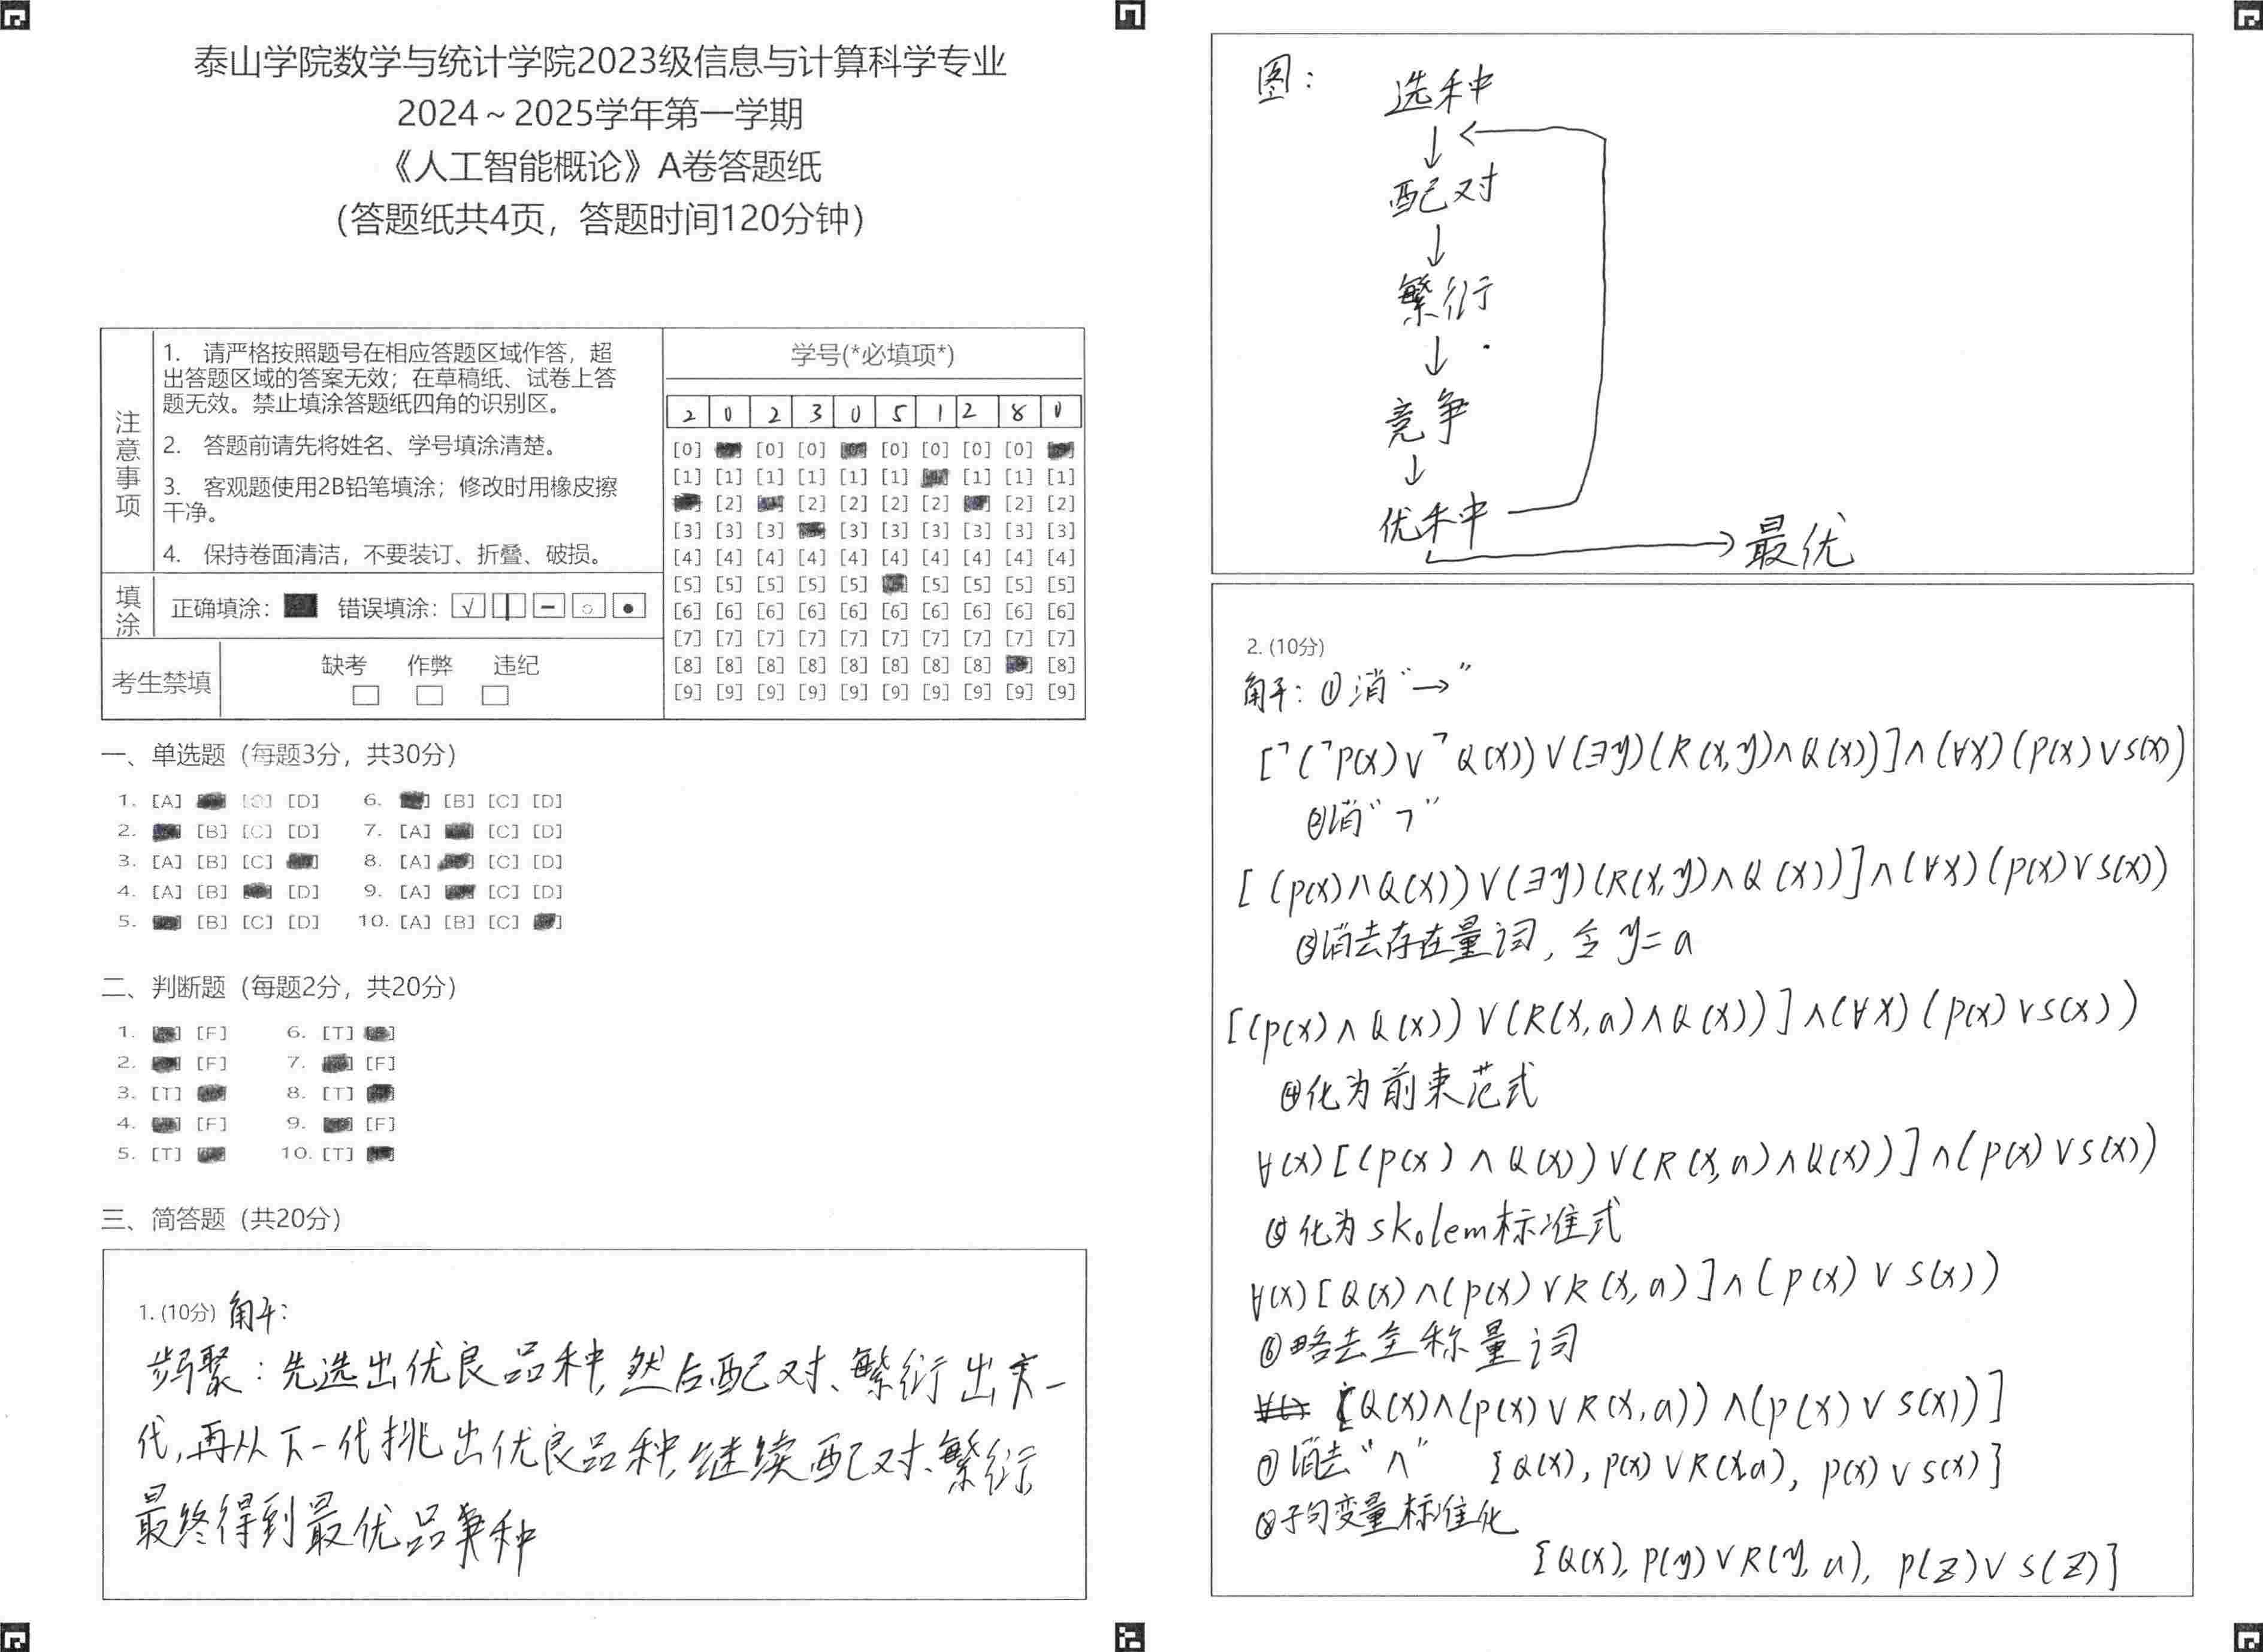 泰山学院数学与统计学院2023级信息与计算科学专业
2024～2025学年第一学期
《人工智能概论》A卷答题纸
（答题纸共4页，答题时间120分钟）
注意事项
1. 请严格按照题号在相应答题区域作答，超
出答题区域的答案无效；在草稿纸、试卷上答
题无效。禁止填涂答题纸四角的识别区。
2. 答题前请先将姓名、学号填涂清楚。
3. 客观题使用2B铅笔填涂；修改时用橡皮擦
干净。
4. 保持卷面清洁，不要装订、折叠、破损。
填涂 正确填涂： 错误填涂：
考生禁填 缺考 作弊 违纪
学号(*必填项*)
2 0 2 3 0 5 1 2 8 0
[0] [0] [0] [0] [0] [0] [0]
[1] [1] [1] [1] [1] [1] [1] [1] [1]
[2] [2] [2] [2] [2] [2] [2]
[3] [3] [3] [3] [3] [3] [3] [3] [3]
[4] [4] [4] [4] [4] [4] [4] [4] [4] [4]
[5] [5] [5] [5] [5] [5] [5] [5] [5]
[6] [6] [6] [6] [6] [6] [6] [6] [6] [6]
[7] [7] [7] [7] [7] [7] [7] [7] [7] [7]
[8] [8] [8] [8] [8] [8] [8] [8] [8]
[9] [9] [9] [9] [9] [9] [9] [9] [9] [9]
一、单选题（每题3分，共30分）
1. [A] [C] [D] 6. [B] [C] [D]
2. [B] [C] [D] 7. [A] [C] [D]
3. [A] [B] [C] 8. [A] [C] [D]
4. [A] [B] [D] 9. [A] [C] [D]
5. [B] [C] [D] 10. [A] [B] [C]
二、判断题（每题2分，共20分）
1. [F] 6. [T]
2. [F] 7. [F]
3. [T] 8. [T]
4. [F] 9. [F]
5. [T] 10. [T]
三、简答题（共20分）
1. (10分) 解：
步骤：先选出优良品种,然后配对、繁衍出下一
代,再从下一代挑出优良品种,继续配对、繁衍
最终得到最优品种
图：
选种
↓
配对
↓
繁衍
↓
竞争
↓
优种
→最优
2. (10分)
解：①消“→”
[¬(¬P(x)∨¬Q(x))∨(∃y)(R(x,y)∧Q(x))]∧(∀x)(P(x)∨S(x))
②消“¬”
[(P(x)∧Q(x))∨(∃y)(R(x,y)∧Q(x))]∧(∀x)(P(x)∨S(x))
③消去存在量词，令y=a
[(P(x)∧Q(x))∨(R(x,a)∧Q(x))]∧(∀x)(P(x)∨S(x))
④化为前束范式
∀(x)[(P(x)∧Q(x))∨(R(x,a)∧Q(x))]∧(P(x)∨S(x))
⑤化为skolem标准式
∀(x)[Q(x)∧(P(x)∨R(x,a)]∧(P(x)∨S(x))
⑥略去全称量词
[Q(x)∧(P(x)∨R(x,a))∧(P(x)∨S(x))]
⑦消去“∧” {Q(x), P(x)∨R(x,a), P(x)∨S(x)}
⑧子句变量标准化
{Q(x), P(y)∨R(y,a), P(z)∨S(z)}